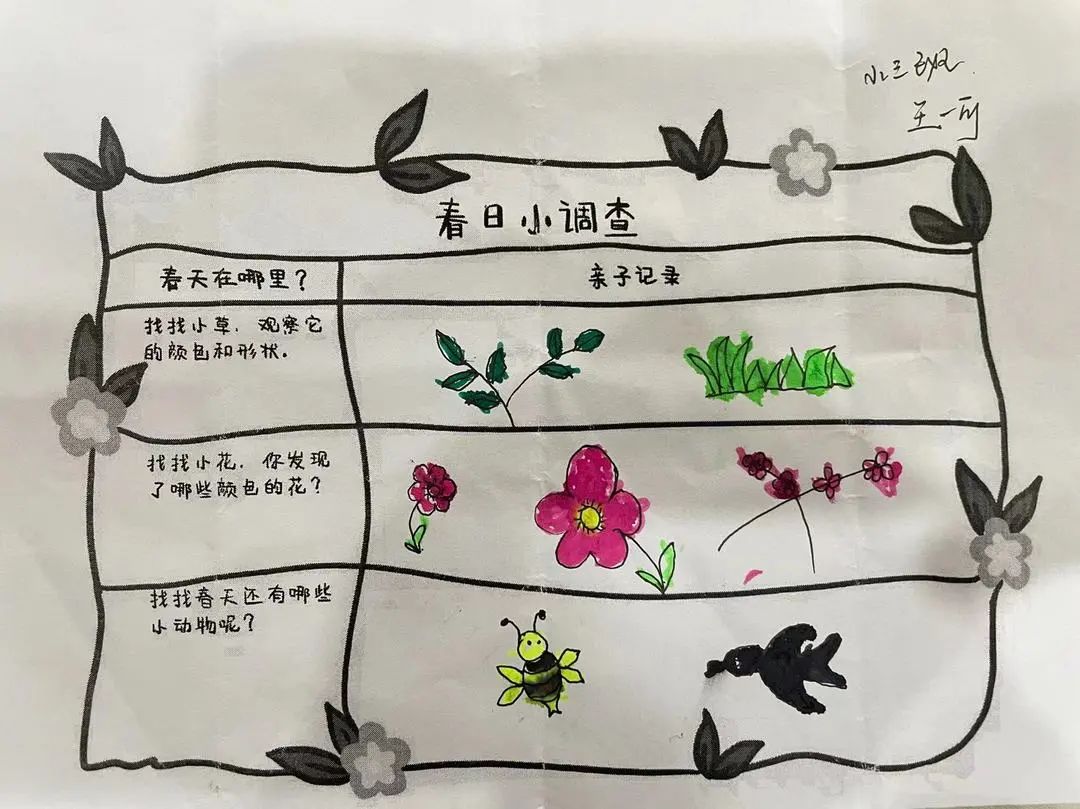 小三班
王一可
春日小调查
春天在哪里？
亲子记录
找找小草，观察它
的颜色和形状。
找找小花，你发现
了哪些颜色的花？
找找春天还有哪些
小动物呢？